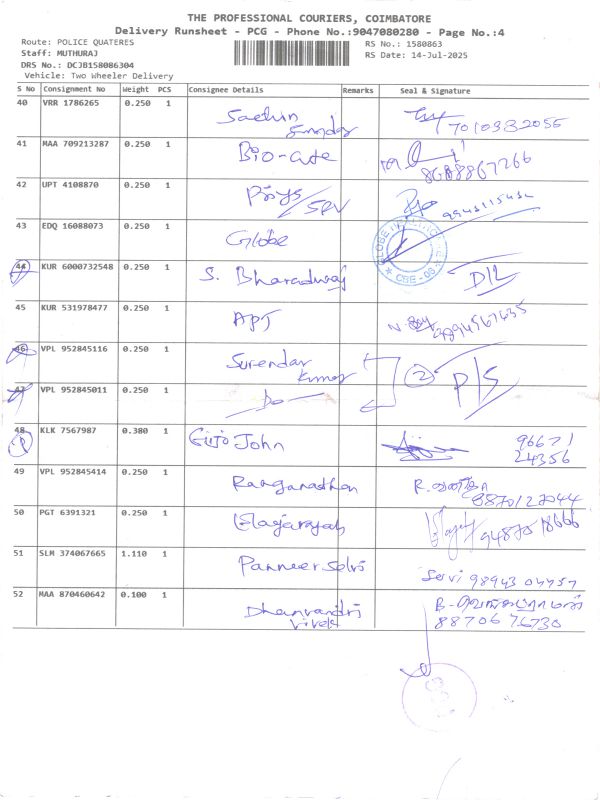 THE PROFESSIONAL COURIERS, COIMBATORE
Delivery Runsheet - PCG - Phone No.:9047080280 - Page No.:4
Route: POLICE QUATERES
RS No.: 1580863
Staff: MUTHURAJ
RS Date: 14-Jul-2025
DRS No.: DCJB158086304
Vehicle: Two Wheeler Delivery
S No Consignment No Weight PCS Consignee Details Remarks Seal & Signature
40 VRR 1786265 0.250 1 Sachin
7010932055
41 MAA 709213287 0.250 1 Bio-cute
8688867266
42 UPT 4108870 0.250 1
9943115432
43 EDQ 16088073 0.250 1 Globe
CBE-08
44 KUR 6000732548 0.250 1 S. Bharadwaj D/L
45 KUR 531978477 0.250 1 APT
46 VPL 952845116 0.250 1 Surendar Kumar (2) D/S
47 VPL 952845011 0.250 1 Do
48 KLK 7567987 0.380 1 Gijo John 96671
24356
49 VPL 952845414 0.250 1 Ranganathan R. வனிதா
8870127044
50 PGT 6391321 0.250 1 Elagarajah
9487018666
51 SLM 374067665 1.110 1 Panneer Selvi Selvi 98943 04757
52 MAA 870460642 0.100 1 Dhanvandri
Vivek 88706 76730